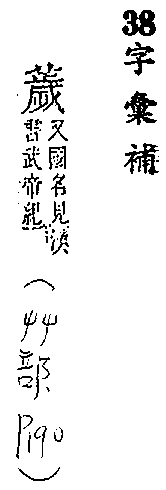 38字彙補
葴又國名見漢
書武帝紀
(艸部
P.190)